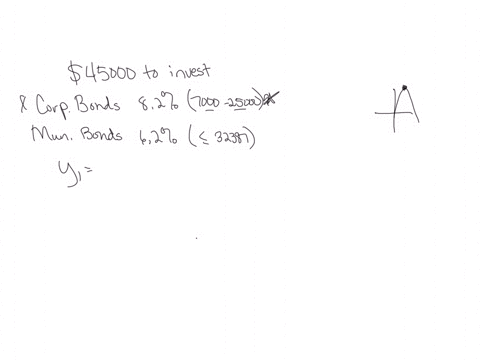 $45000 to invest
x Corp. Bonds 8.2% (7000 - 25000)
Mun. Bonds 6.2% (≤ 32387)
y₁ =